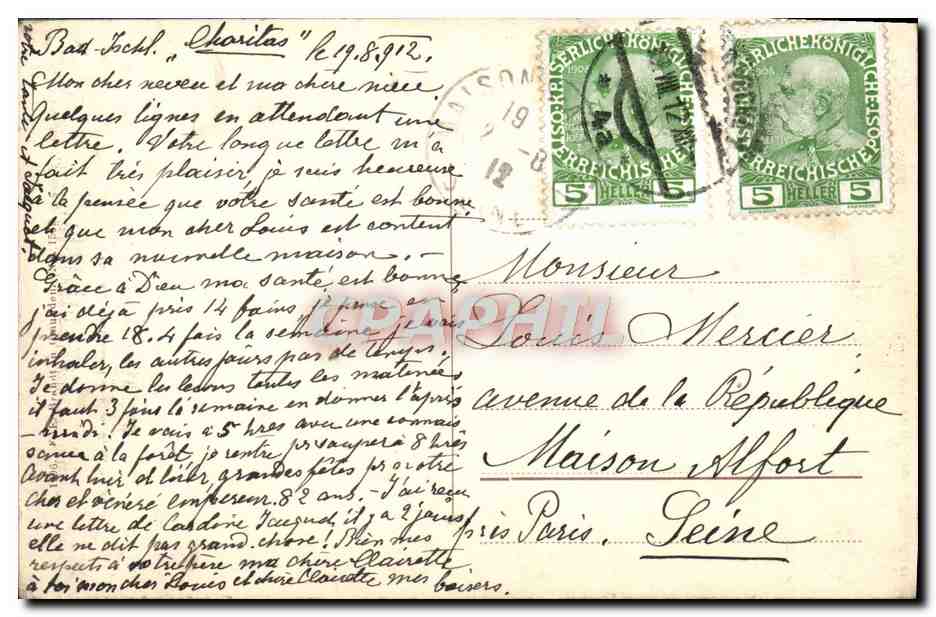 Bad-Ischl. „Charitas" le 19.8.912.
Mon cher neveu et ma chère nièce
Quelques lignes en attendant une
lettre. Votre longue lettre m'a
fait très plaisir, je suis heureuse
à la pensée que vôtre santé est bonne
et que mon cher Louis est content
dans sa nouvelle maison. —
Grâce à Dieu ma santé est bonne
j'ai déjà pris 14 bains je pense en
prendre 18. 4 fois la semaine je vais
inhaler, les autres jours pas de temps.
Je donne les leçons toutes les matinées
il faut 3 fois la semaine en donner l'après
-midi. Je vais à 5 hres avec une connais
sance à la forêt, je rentre pr souper à 8 hres
avant hier et hier, grandes fêtes pr notre
cher et vénéré empereur 82 ans. — J'ai reçu
une lettre de Jacquod, il y a 2 jours
elle ne dit pas grand. chose! Bien mes
respects à votre père ma chère Clairette
à toi mon cher Louis et chère Clairette mes baisers.
votre tante
Monsieur
Louis Mercier
avenue de la République
Maison Alfort
près Paris. Seine
19
-8
12
5 HELLER 5
5 HELLER 5
CPAPHIL